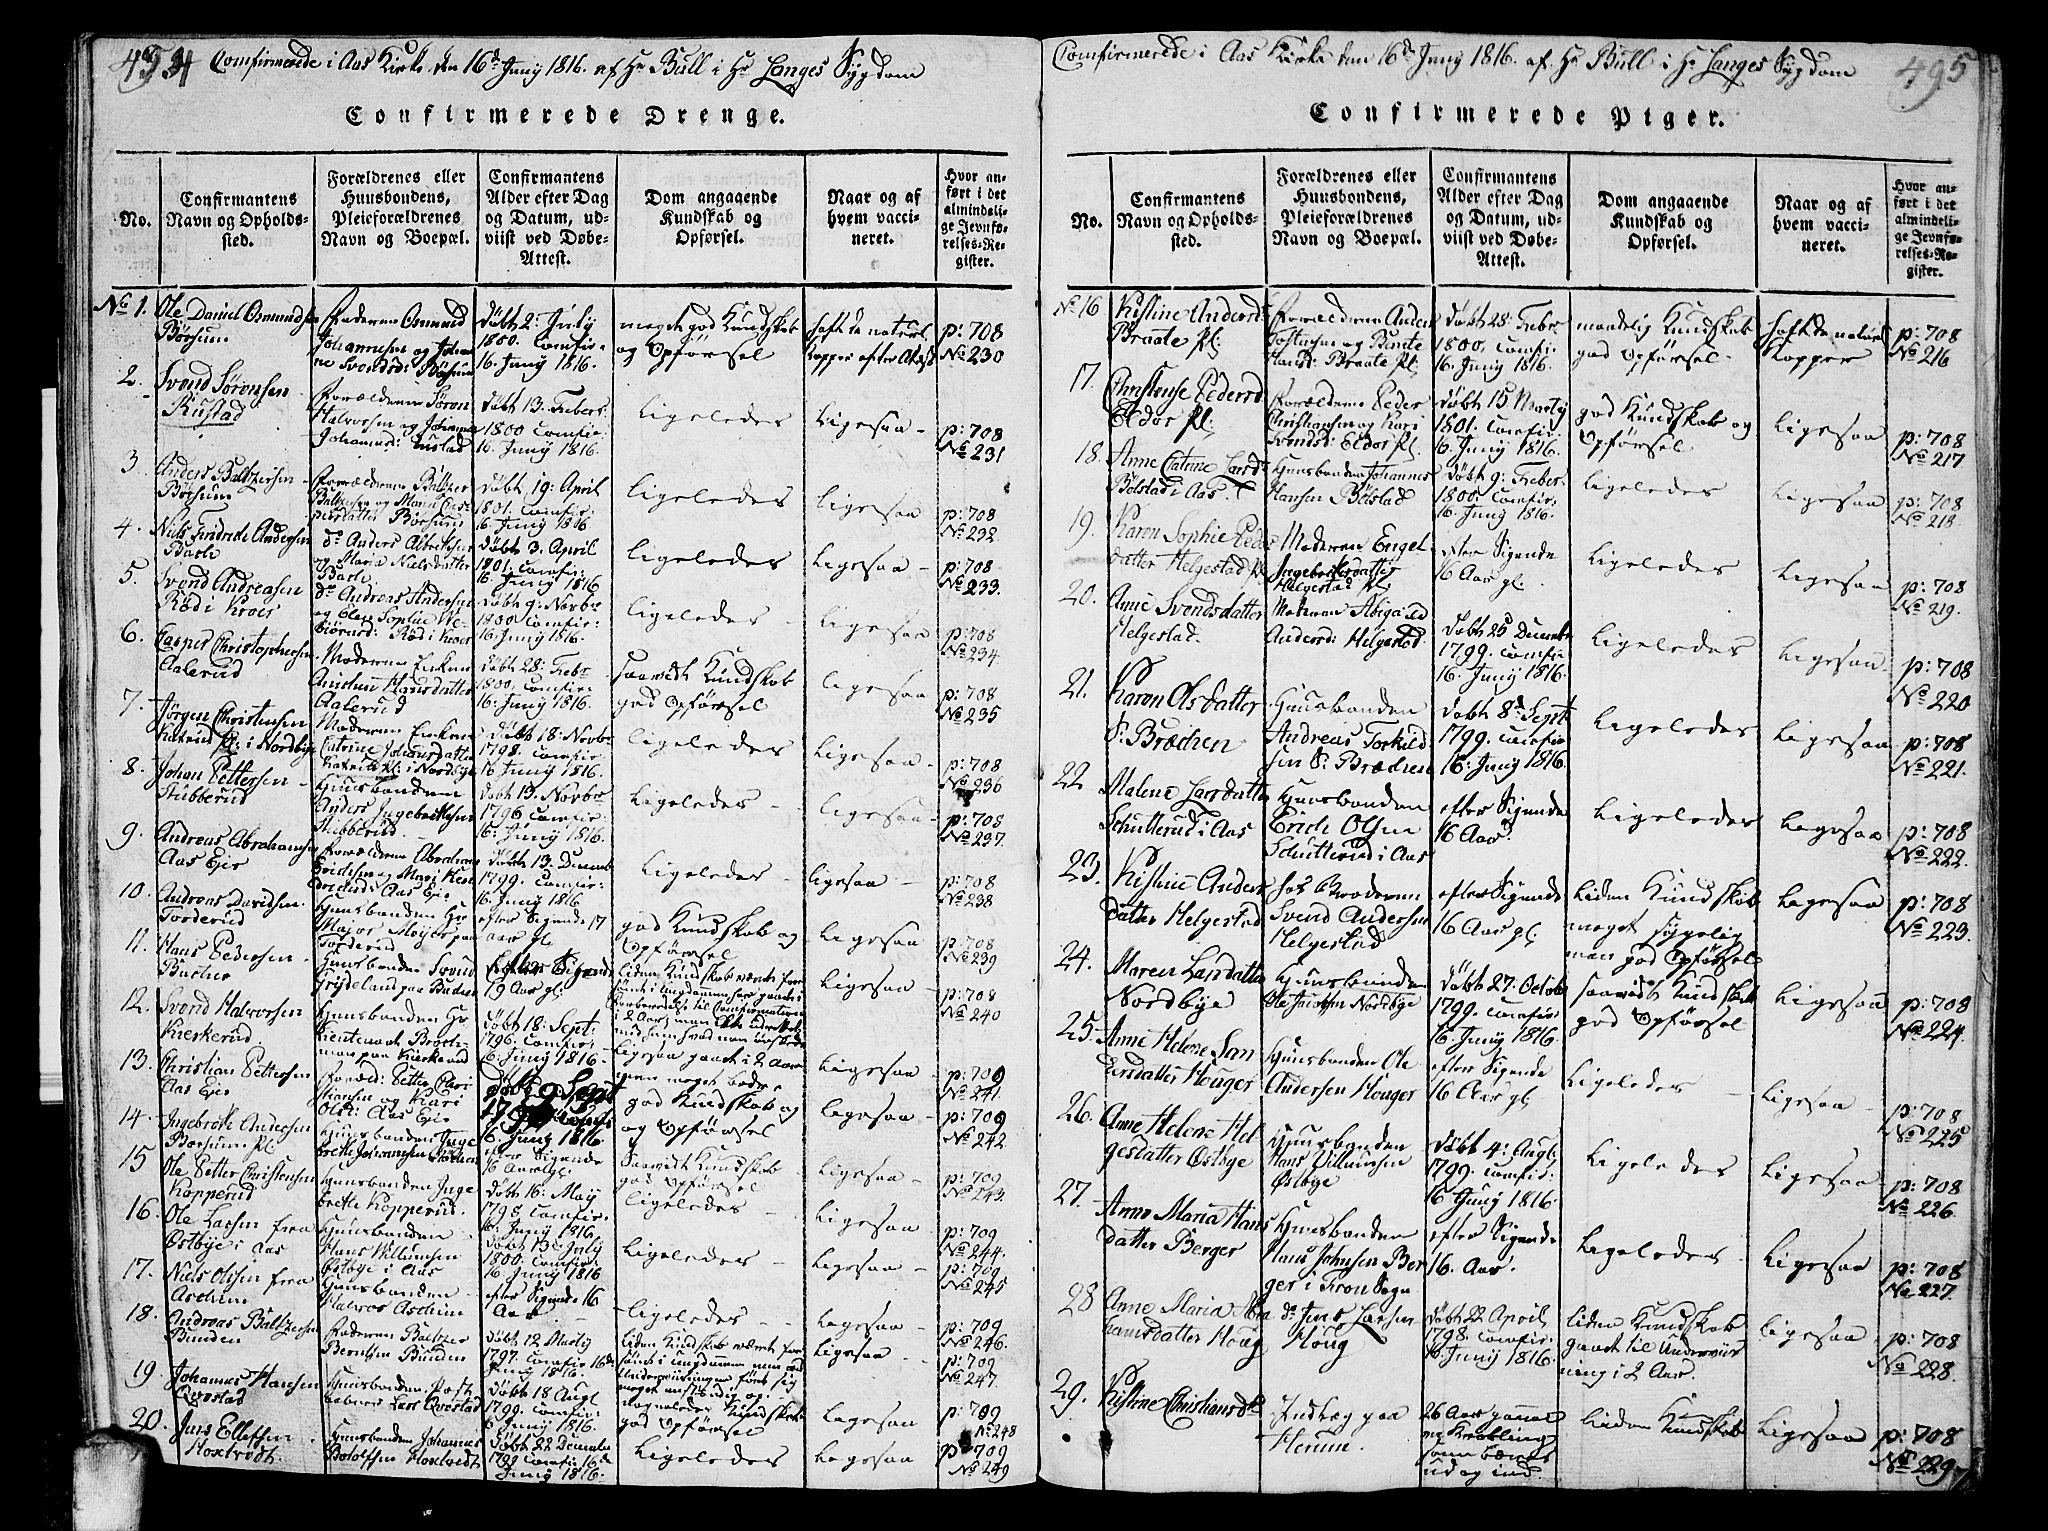 494
Comfirmerede i Aas Kirke den 16de Juny 1816. af Hr Bull i Hr Langes Sygdom
Confirmerede Drenge.
No.
Confirmantens
Navn og Opholds-
sted.
Forældrenes eller
Huusbondens,
Pleieforældrenes
Navn og Boepæl.
Confirmantens
Alder efter Dag
og Datum, ud-
viist ved Døbe-
Attest.
Dom angaaende
Kundskab og
Opførsel.
Naar og af
hvem vacci-
neret.
Hvor an-
ført i det
almindeli-
ge Jevnfø-
relses-Re-
gister.
No 1.
Ole Daniel Osmundsen
Børsum
Faderen Osmund
Johannesen og Johan-
ne Svendsd: Børsum
Døbt 2: July
1800. Comfir-
16. Juny 1816.
meget god Kundskab
og Opførsel
hafte naturl:
Kopper efter Attest
p: 708
No 230
2.
Svend Sørensen
Rustad
Forældrene Søren
Halvorsen og Johanne
Johannesd: Rustad
Døbt 13. Febr:
1800 Comfir:
16. Juny 1816.
Ligeledes
Ligesaa
p: 708
No 231
3.
Anders Baltzersen
Børsum
Forældrene Baltzer
Baltzersen og Maria
Børsum
Døbt 19: April
1801. Comfir:
16 Juny 1816
Ligeledes
Ligesaa
p: 708
No 232
4.
Niels Fridrich Andersen
do Anders Albretsen
og Maria Nielsdatter
Døbt 3. April
1801. Comfir:
16. Juny 1816
Ligeledes
Ligesaa
p: 708
No 233.
5.
Svend Andreasen
Rød i Kroer
do Andreas Andersen
og Elen Sophie
Rød i Kroer
Døbt 9: Novbr
1800 Comfir:
16. Juny 1816.
Ligeledes
Ligesaa
p: 708
No 234.
6.
Casper Christophersen
Aalerud
Moderen Enken
Hansdatter
Aalerud
Døbt 28: Febr
1800. Comfir:
16: Juny 1816.
Saavidt Kundskab
god Opførsel
Ligesaa
p: 708
No 235
7.
Jørgen Christensen
i Nordbye
Moderen Enken
Catrine Johansdatter
i Nordbye
Døbt 18: Novbr
1798. Comfir:
16 Juny 1816.
Ligeledes
Ligesaa
p: 708
No 236
8.
Johan Pettersen
Stubberud
Huusbonden
Anders Ingebretsen
Stubberud
Døbt 13. Novbr
1796 Comfir:
16: Juny 1816.
Ligeledes
Ligesaa
p: 708
No 237.
9.
Andreas Abrahamsen
Aas Eie
Forældrene Abraham
og Mari
Aas Eie
Døbt 13. Decemb
1799. Comfir:
16. Juny 1816
Ligeledes
Ligesaa
p: 708
No 238
10.
Andreas Davidsen
Torderud
Huusbonden Hr
Major Meyer paa
Torderud
efter Sigende 17
Aar gl:
god Kundskab og
Opførsel
Ligesaa
p: 708
No 239
11.
Hans Pedersen
Huusbonden Svend
efter Sigende
19 Aar gl:
Liden Kundskab
Ligesaa
p: 708
No 240
12.
Svend Halvorsen
Kierkerud
Huusbonden Hr
Lieutenant
paa Kierkerud
Døbt 18: Sept:
1796. Comfir:
16. Juny 1816.
Ligesaa gaaet i 2 Aar
men meget bedre
Ligesaa
p: 709
No 241.
13.
Christian Pettersen
Aas Eie
Foræld: Petter Chri-
stiansen og Kari
Olsd: Aas Eie
Døbt 9 Sept
16. Juny 1816
god Kundskab og
og Opførsel
Ligesaa
p: 709
No 242
14.
Ingebret Andersen
Børsum Pl:
Huusbonden Inge-
bret Johannesen
efter Sigende
16 Aar gl:
Saavidt Kundskab
god Opførsel
Ligesaa
p: 709
No 243.
15
Ole Petter Christensen
Kopperud
Huusbonden Inge-
bret Kopperud.
Døbt 16: May
1798. Comfir:
16. Juny 1816.
Ligeledes
Ligesaa
p: 709
No 244.
16.
Ole Larsen fra
Østbye i Aas
Huusbonden
Hans Willumsen
Østbye i Aas
Døbt 13. July
1800. Comfir:
16 Juny 1816
Ligeledes
Ligesaa
p: 709
No 245
17.
Niels Olsen fra
Aschim
Huusbonden
Halvor Aschim
efter Sigende 16
Aar
Ligeledes
Ligesaa
p: 709
No 246.
18.
Andreas Baltzersen
Bunden
Faderen Baltzer
Berntsen Bunden
Døbt 12 Marty
1797. Comfir 16de
Juny 1816.
Liden Kundskab
Ligesaa
p: 709
No 247.
19.
Johannes Hansen
Qvestad
Huusbonden
Lars Qvestad
Døbt 18 Augl
1799. Comfir:
16 Juny 1816.
Kundskab
god Opførsel
Ligesaa
p: 709
No 248
20.
Jens Ellefsen
Huusbonden Johannes
Døbt 22 December
1799 Comfir 16de
Juny 1816.
Ligeledes
Ligesaa
p: 709
No 249
Comfirmerede i Aas Kirke den 16de Juny 1816. af Hr Bull i Hr Langes Sygdom
495
Confirmerede Piger.
No.
Confirmantens
Navn og Opholds-
sted.
Forældrenes eller
Huusbondens,
Pleieforældrenes
Navn og Boepæl.
Confirmantens
Alder efter Dag
og Datum, ud-
viist ved Døbe-
Attest.
Dom angaaende
Kundskab og
Opførsel.
Naar og af
hvem vacci-
neret.
Hvor an-
ført i det
almindeli-
ge Jevnfø-
relses-Re-
gister.
No 16
Kistine Andersd:
Braate Pl:
Forældrene Anders
Tostensen og Birete
Hansd: Braate Pl:
Døbt 28: Febr
1800. Comfir:
16. Juny 1816.
maadelig Kundskab
god Opførsel
hafte naturl:
Kopper
p: 708
No 216
17.
Christense Pedersd
Eldor Pl:
Forældrene Peder
Christiansen og Kari
Svendsd: Eldor Pl:
Døbt 15 Marty
1801. Comfir:
16. Juny 1816.
god Kundskab og
Opførsel
Ligesaa
p: 708
No 217
18.
Anne Catrine Larsd:
Bølstad i Aas
Huusbonden Johannes
Hansen Bølstad
Døbt 9: Febr
1800. Comfir:
16. Juny 1816.
Ligeledes
Ligesaa
p: 708
No 218.
19.
Karen Sophie Peders
datter Helgestad Pl
Moderen Engel
Ingebretsdatter
Helgestad Pl:
efter Sigende
16 Aar gl:
Ligeledes
Ligesaa
p: 708
No 219.
20.
Anne Svendsdatter
Helgestad.
Moderen Abigaild
Andersd: Helgestad
Døbt 25 December
1799. Comfir:
16. Juny 1816.
Ligeledes
Ligesaa
p: 708
No 220
21.
Karen Olsdatter
S: Bræchen
Huusbonden
Andreas Torkild-
sen S: Bræchen
Døbt 8de Sept
1799. Comfir
16. Juny 1816
Ligeledes
Ligesaa
p: 708
No 221.
22
Malene Larsdatter
Schutterud i Aas
Huusbonden
Erich Olsen
Schutterud i Aas
efter Sigende
16 Aar
Ligeledes
Ligesaa
p: 708
No 222.
23.
Kistine Anders
datter Helgestad
hos Broderen
Svend Andersen
Helgestad
efter Sigende
16 Aar gl:
Liden Kundskab
meget sygelig
men god Opførsel
Ligesaa
p: 708
No 223.
24.
Maren Larsdatter
Nordbye
Huusbonden
Ole Jacobsen Nordbye
Døbt 27: Octob
1799. Comfir
16. Juny 1816
Saavidt Kundskab
god Opførsel
Ligesaa
p: 708
No 224.
25.
Anne Helene Lar-
sdatter Houger
Huusbonden Ole
Andersen Houger
efter Sigende
16 Aar gl:
Ligeledes
Ligesaa
p: 708
No 225
26.
Anne Helene Hel-
gesdatter Østbye
Huusbonden
Hans Villumsen
Østbye
Døbt 4: Augl
1799. Comfir:
16 Juny 1816.
Ligeledes
Ligesaa
p: 708
No 226.
27.
Anne Maria Hans
datter Berger
Huusbonden
Hans Johnsen Ber-
ger i Fron Sogn
efter Sigende
16. Aar
Ligeledes
Ligesaa
p: 708
No 227.
28
Anne Maria Abra
hamsdatter Houg
do Jens Larsen
Houg
Døbt 22 April
1798. Comfir:
16 Juny 1816.
Liden Kundskab
gaaet til Underviis-
ning i 2 Aar.
Ligesaa
p: 708
No 228.
29.
Kistine Christiansdr
Indlæg paa
Herum.
26 Aar gammel
en Krøbling
som bæres
ud og ind
Liden Kundskab
Ligesaa
p: 708
No 229